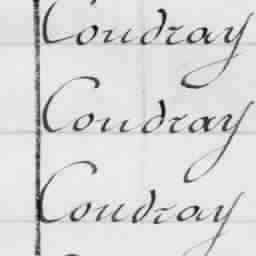 Coudray
Coudray
Coudray